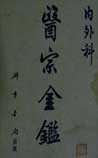 內外科
醫宗金鑑